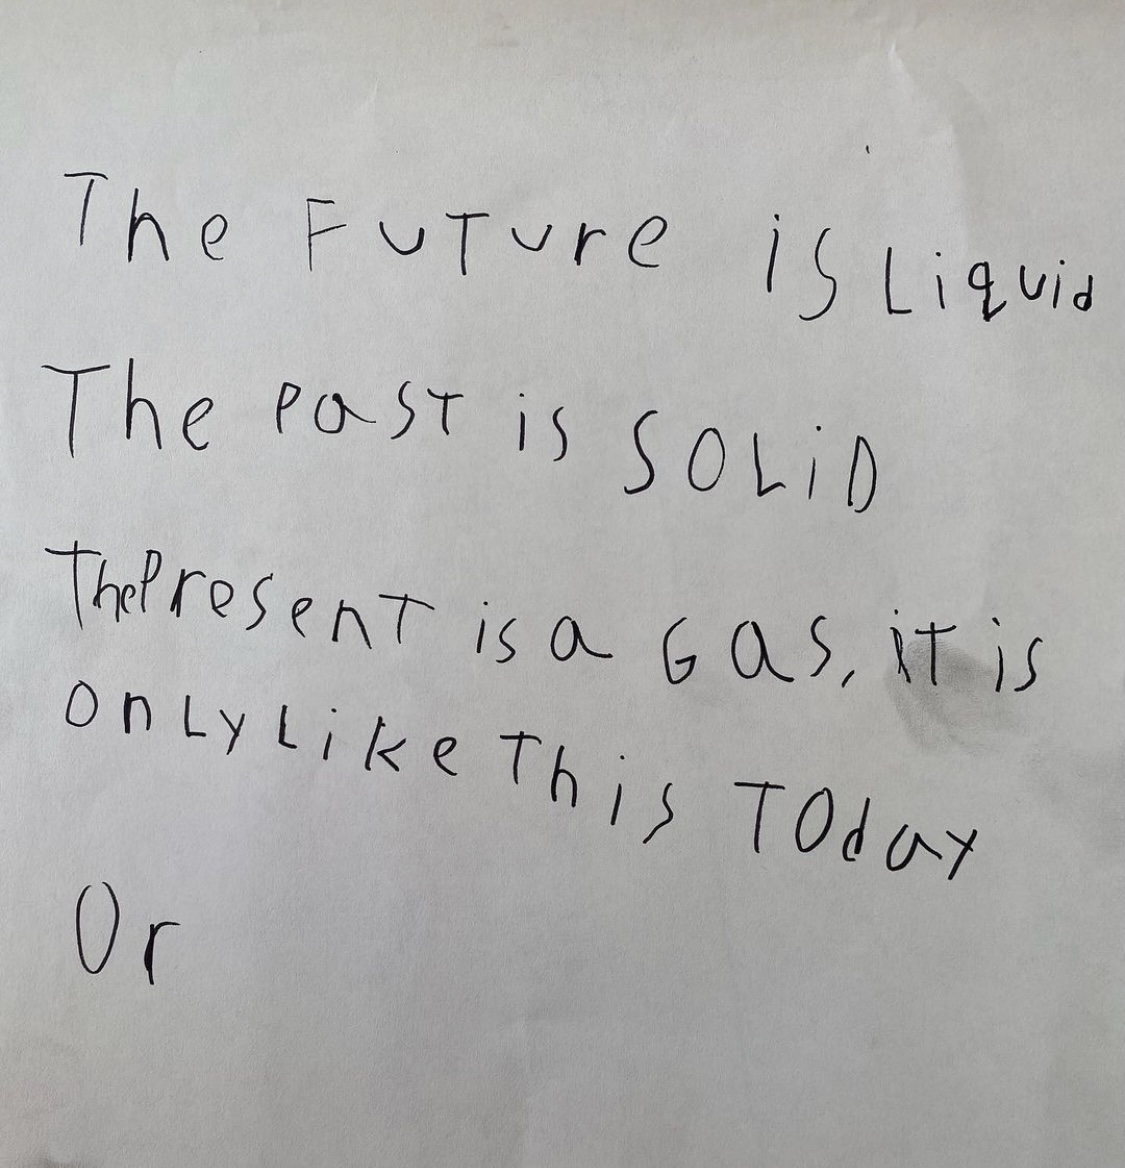 The FuTure is Liquid
The past is SOLiD
ThePresenT is a Gas, iT is
onLy Like This TOday
Or